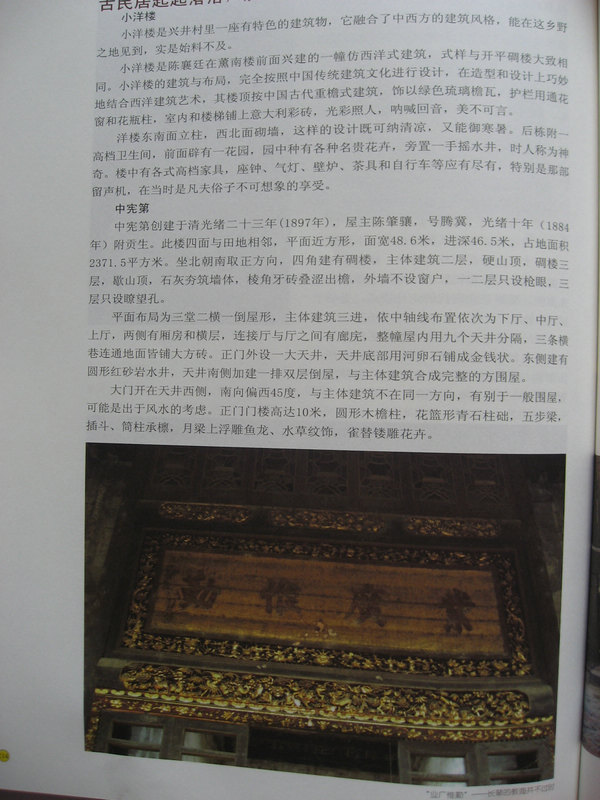 古民居起起落落，
小洋楼
小洋楼是兴井村里一座有特色的建筑物，它融合了中西方的建筑风格，能在这乡野
之地见到，实是始料不及。
小洋楼是陈襄廷在薰南楼前面兴建的一幢仿西洋式建筑，式样与开平碉楼大致相
同。小洋楼的建筑与布局，完全按照中国传统建筑文化进行设计，在造型和设计上巧妙
地结合西洋建筑艺术，其楼顶按中国古代重檐式建筑，饰以绿色琉璃檐瓦，护栏用通花
窗和花瓶柱，室内和楼梯铺上意大利彩砖，光彩照人，呐喊回音，美不可言。
洋楼东南面立柱，西北面砌墙，这样的设计既可纳清凉，又能御寒暑。后栋附一
高档卫生间，前面辟有一花园，园中种有各种名贵花卉，旁置一手摇水井，时人称为神
奇。楼中有各式高档家具，座钟、气灯、壁炉、茶具和自行车等应有尽有，特别是那部
留声机，在当时是凡夫俗子不可想象的享受。
中宪第
中宪第创建于清光绪二十三年(1897年)，屋主陈肇骧，号腾冀，光绪十年（1884
年）附贡生。此楼四面与田地相邻，平面近方形，面宽48.6米，进深46.5米，占地面积
2371.5平方米。坐北朝南取正方向，四角建有碉楼，主体建筑二层，硬山顶，碉楼三
层，歇山顶，石灰夯筑墙体，棱角牙砖叠涩出檐，外墙不设窗户，一二层只设枪眼，三
层只设瞭望孔。
平面布局为三堂二横一倒屋形，主体建筑三进，依中轴线布置依次为下厅、中厅、
上厅，两侧有厢房和横层，连接厅与厅之间有廊庑，整幢屋内用九个天井分隔，三条横
巷连通地面皆铺大方砖。正门外设一大天井，天井底部用河卵石铺成金钱状。东侧建有
圆形红砂岩水井，天井南侧加建一排双层倒屋，与主体建筑合成完整的方围屋。
大门开在天井西侧，南向偏西45度，与主体建筑不在同一方向，有别于一般围屋，
可能是出于风水的考虑。正门门楼高达10米，圆形木檐柱，花篮形青石柱础，五步梁，
插斗、筒柱承檩，月梁上浮雕鱼龙、水草纹饰，雀替镂雕花卉。
勤惟廣業
“业广惟勤”——长辈的教诲并不过时